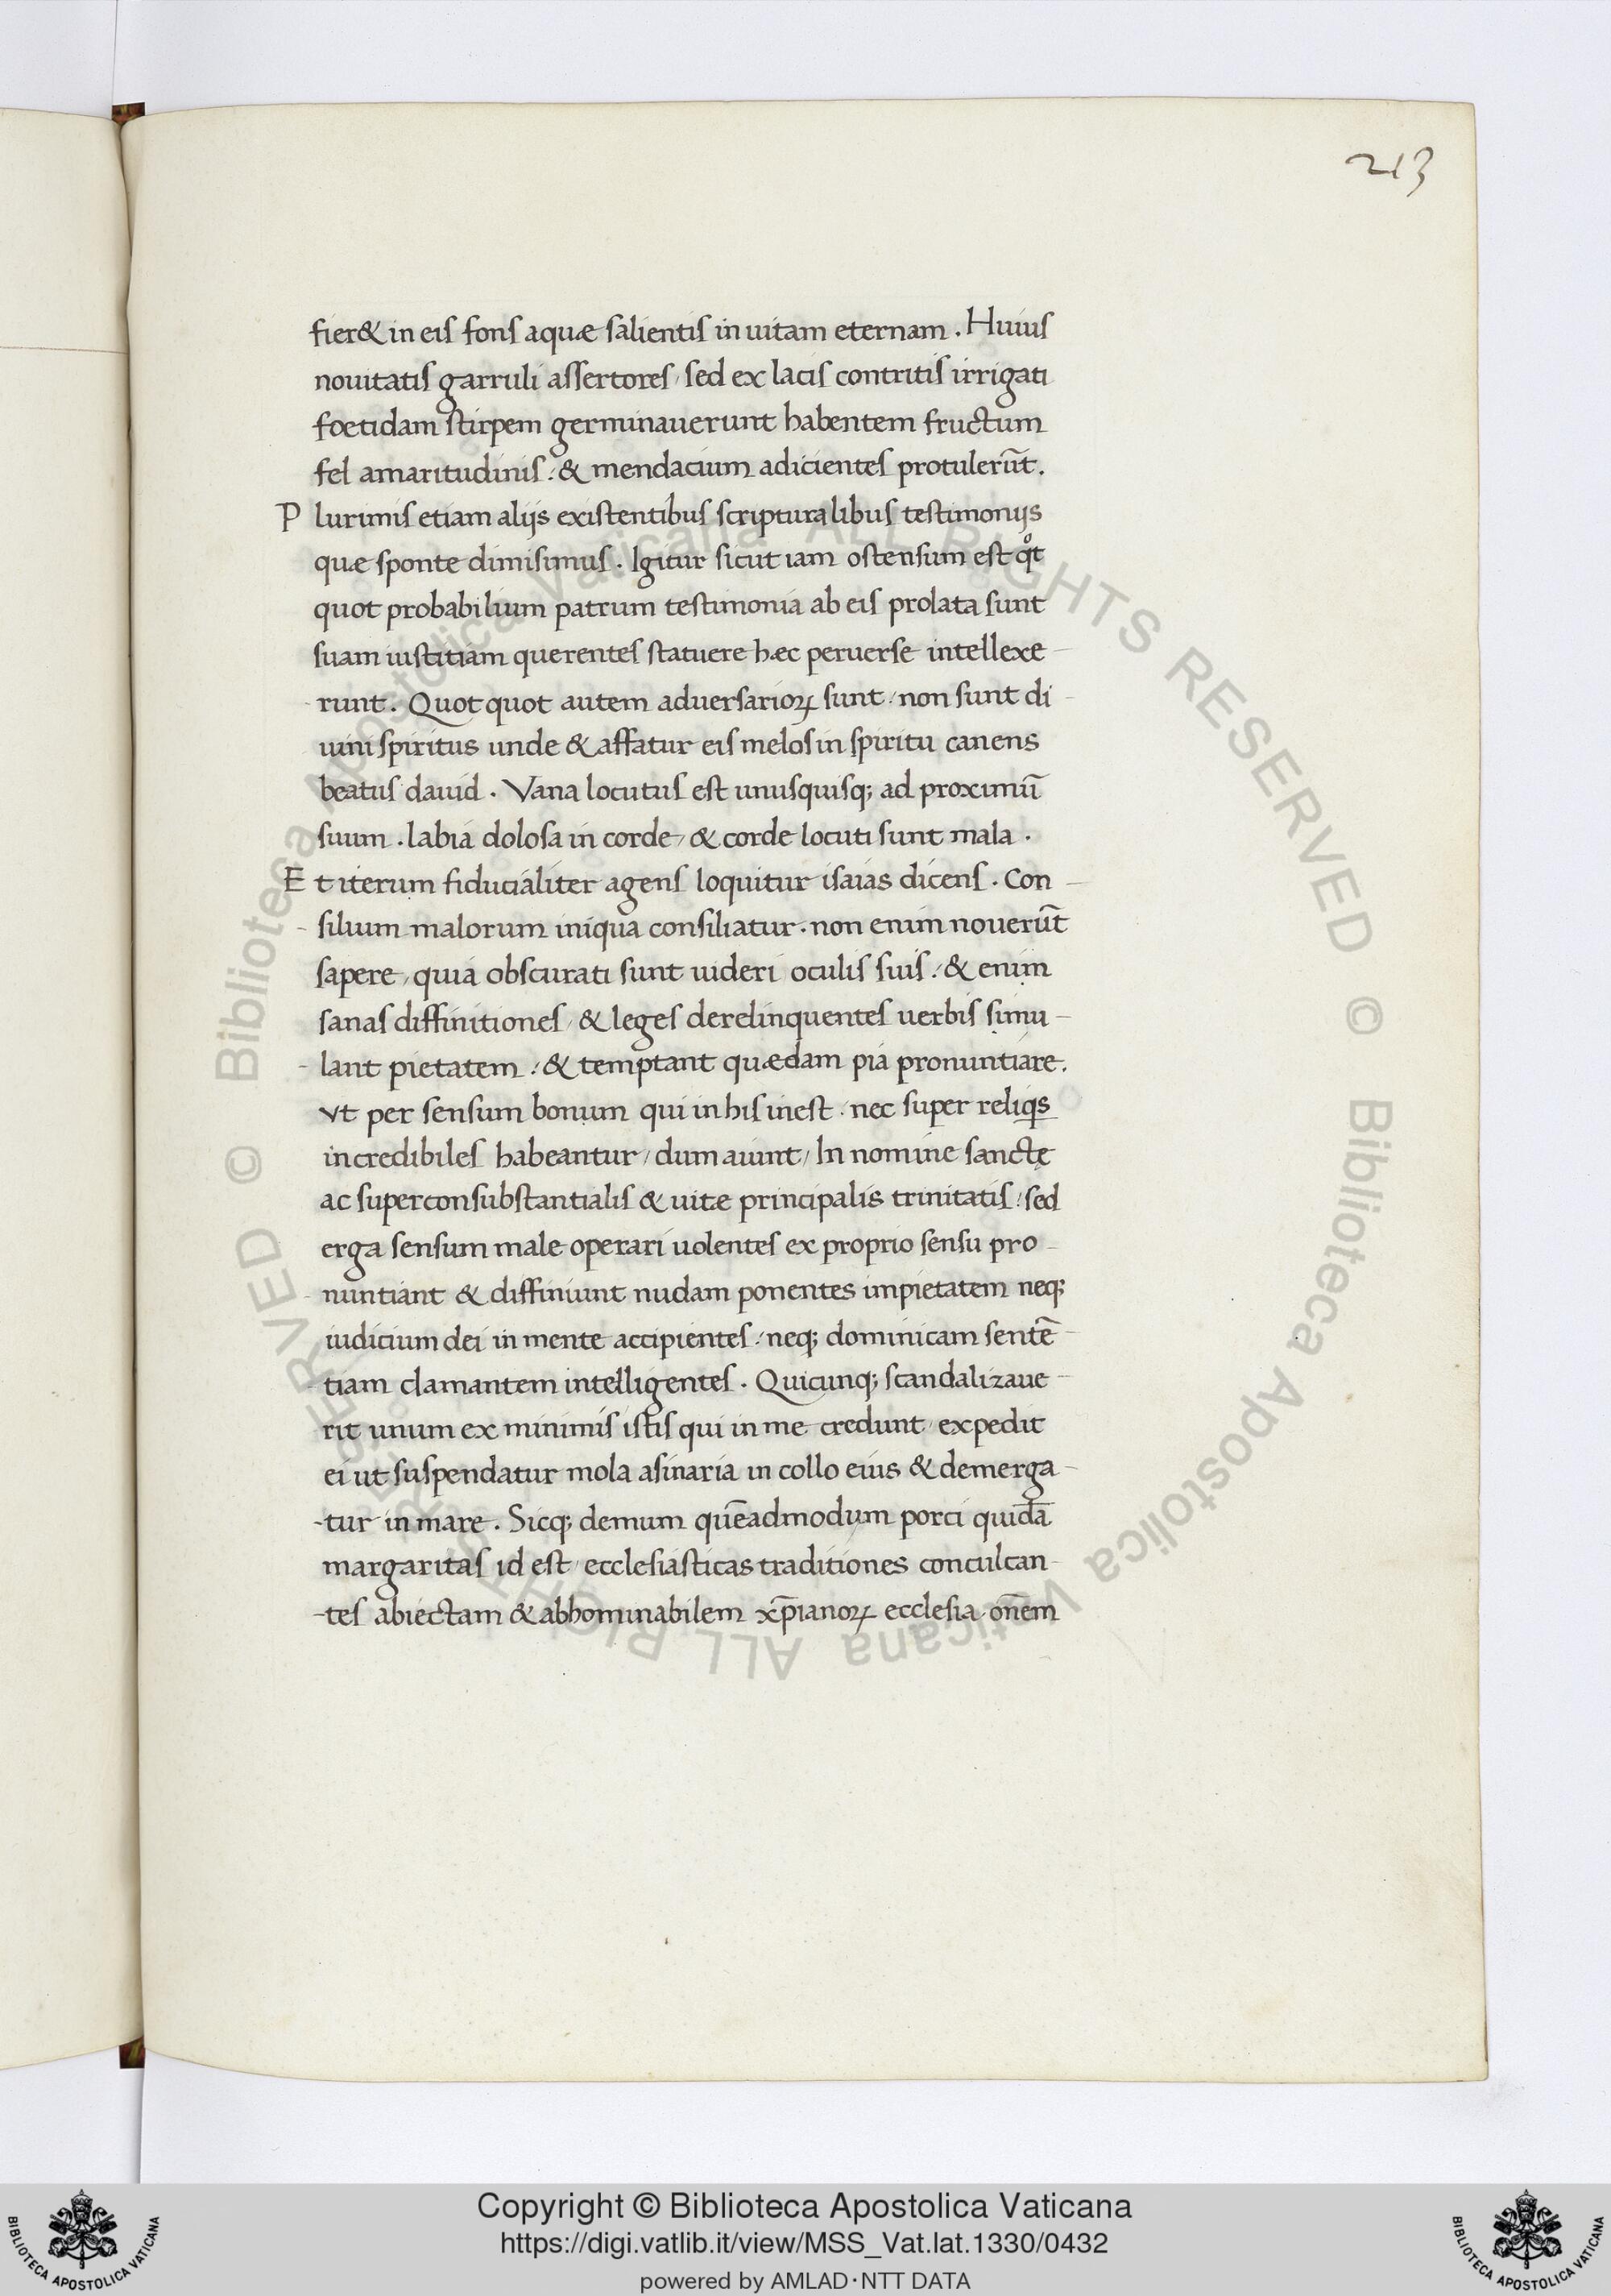 213
fier& in eis fons aquæ salientis in uitam eternam. Huius
nouitatis garruli assertores, sed ex lacis contritis irrigati
foetidam stirpem germinauerunt habentem fructum
fel amaritudinis: & mendacium adicientes protulerūt.
P lurimis etiam alijs existentibus scripturalibus testimonijs
quæ sponte dimisimus. Igitur sicut iam ostensum est qͦt
quot probabilium patrum testimonia ab eis prolata sunt
suam iustitiam querentes statuere hæc peruerse intellexe
runt. Quotquot autem aduersarioꝝ sunt, non sunt di
uini spiritus unde & affatur eis melos in spiritu canens
beatus dauid. Vana locutus est unusquisq; ad proximū
suum. labia dolosa in corde, & corde locuti sunt mala.
E t iterum fiducialiter agens loquitur isaias dicens. Con-
silium malorum iniqua consiliatur. non enim nouerūt
sapere, quia obscurati sunt uideri oculis suis: & enim
sanas diffinitiones, & leges derelinquentes uerbis simu-
lant pietatem: & temptant quædam pia pronuntiare.
vt per sensum bonum qui in his inest, nec super reliqs
incredibiles habeantur, dum aiunt, In nomine sanctę
ac superconsubstantialis & uitæ principalis trinitatis: sed
erga sensum male operari uolentes ex proprio sensu pro-
nuntiant & diffiniunt nudam ponentes impietatem neq;
iudicium dei in mente accipientes, neq; dominicam sentē-
tiam clamantem intelligentes. Quicunq; scandalizaue-
rit unum ex minimis istis qui in me credunt, expedit
ei ut suspendatur mola asinaria in collo eius & demerga-
-tur in mare. Sicq; demum quēadmodum porci quidā
margaritas id est, ecclesiasticas traditiones conculcan-
-tes abiectam & abhominabilem xp̄ianoꝝ ecclesia, onēm
© Biblioteca Apostolica Vaticana ALL RIGHTS RESERVED © Biblioteca Apostolica Vaticana ALL RIGHTS RESERVED
Copyright © Biblioteca Apostolica Vaticana
https://digi.vatlib.it/view/MSS_Vat.lat.1330/0432
powered by AMLAD·NTT DATA
BIBLIOTECA APOSTOLICA VATICANA
BIBLIOTECA APOSTOLICA VATICANA